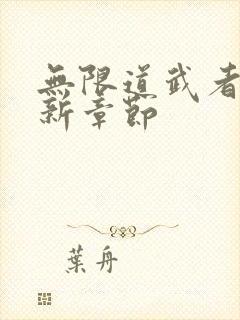 無限道武者
新章節
葉舟